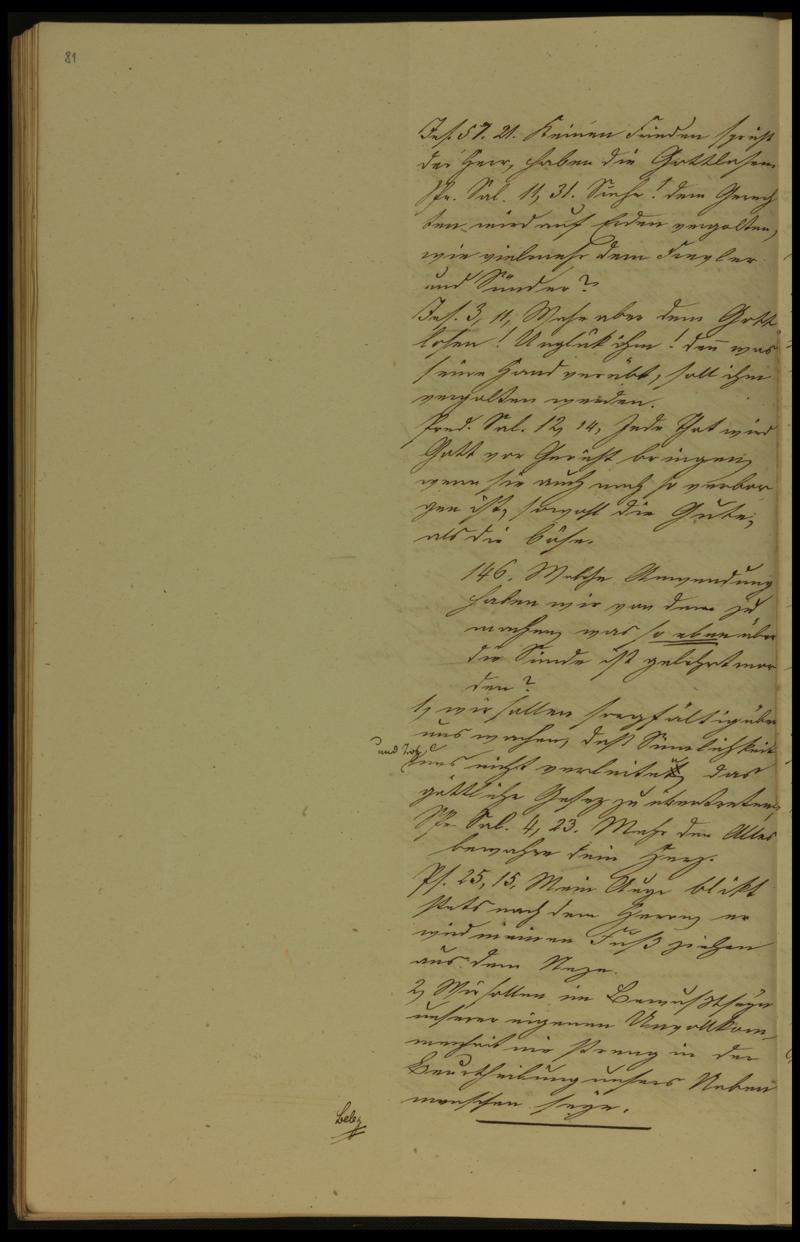 81
Jes. 57. 21. Keinen Frieden spricht
der Herr, haben die Gottlosen.
Spr. Sal. 11, 31. Siehe! dem Gerech
ten wird auf Erden vergolten,
wie vielmehr dem Frevler
und Sünder?
Jes. 3, 11, Wehe aber dem Gott
losen! Unglük ihm! den̄ was
seine Hand verübt, soll ihm
vergolten werden.
Pred. Sal. 12, 14, Jede That wird
Gott vor Gericht bringen,
wenn sie auch noch so verbor
gen ist, sowohl die Gute,
als die böse.
146. Welche Anwendung
haben wir von dem zu
machen, was so eben über
die Sünde ist gelehrt wor
den?
1, wir sollen sorgfältig über
uns wachen, daß Sinnlichkeit
und
uns nicht verleite, das
göttliche Gesez zu übertreten,
Spr. Sal. 4, 23. Mehr den Alles
bewahre dein Herz.
Ps. 25, 15. Mein Auge blikt
stets nach dem Herrn, er
wird meinen Fuß ziehen
aus dem Neze.
2, Wir sollen im Bewußtseyn
unserer eigenen Unvollkom-
menheit nie streng in der
Beurtheilung unsers Neben
menschen seyn.